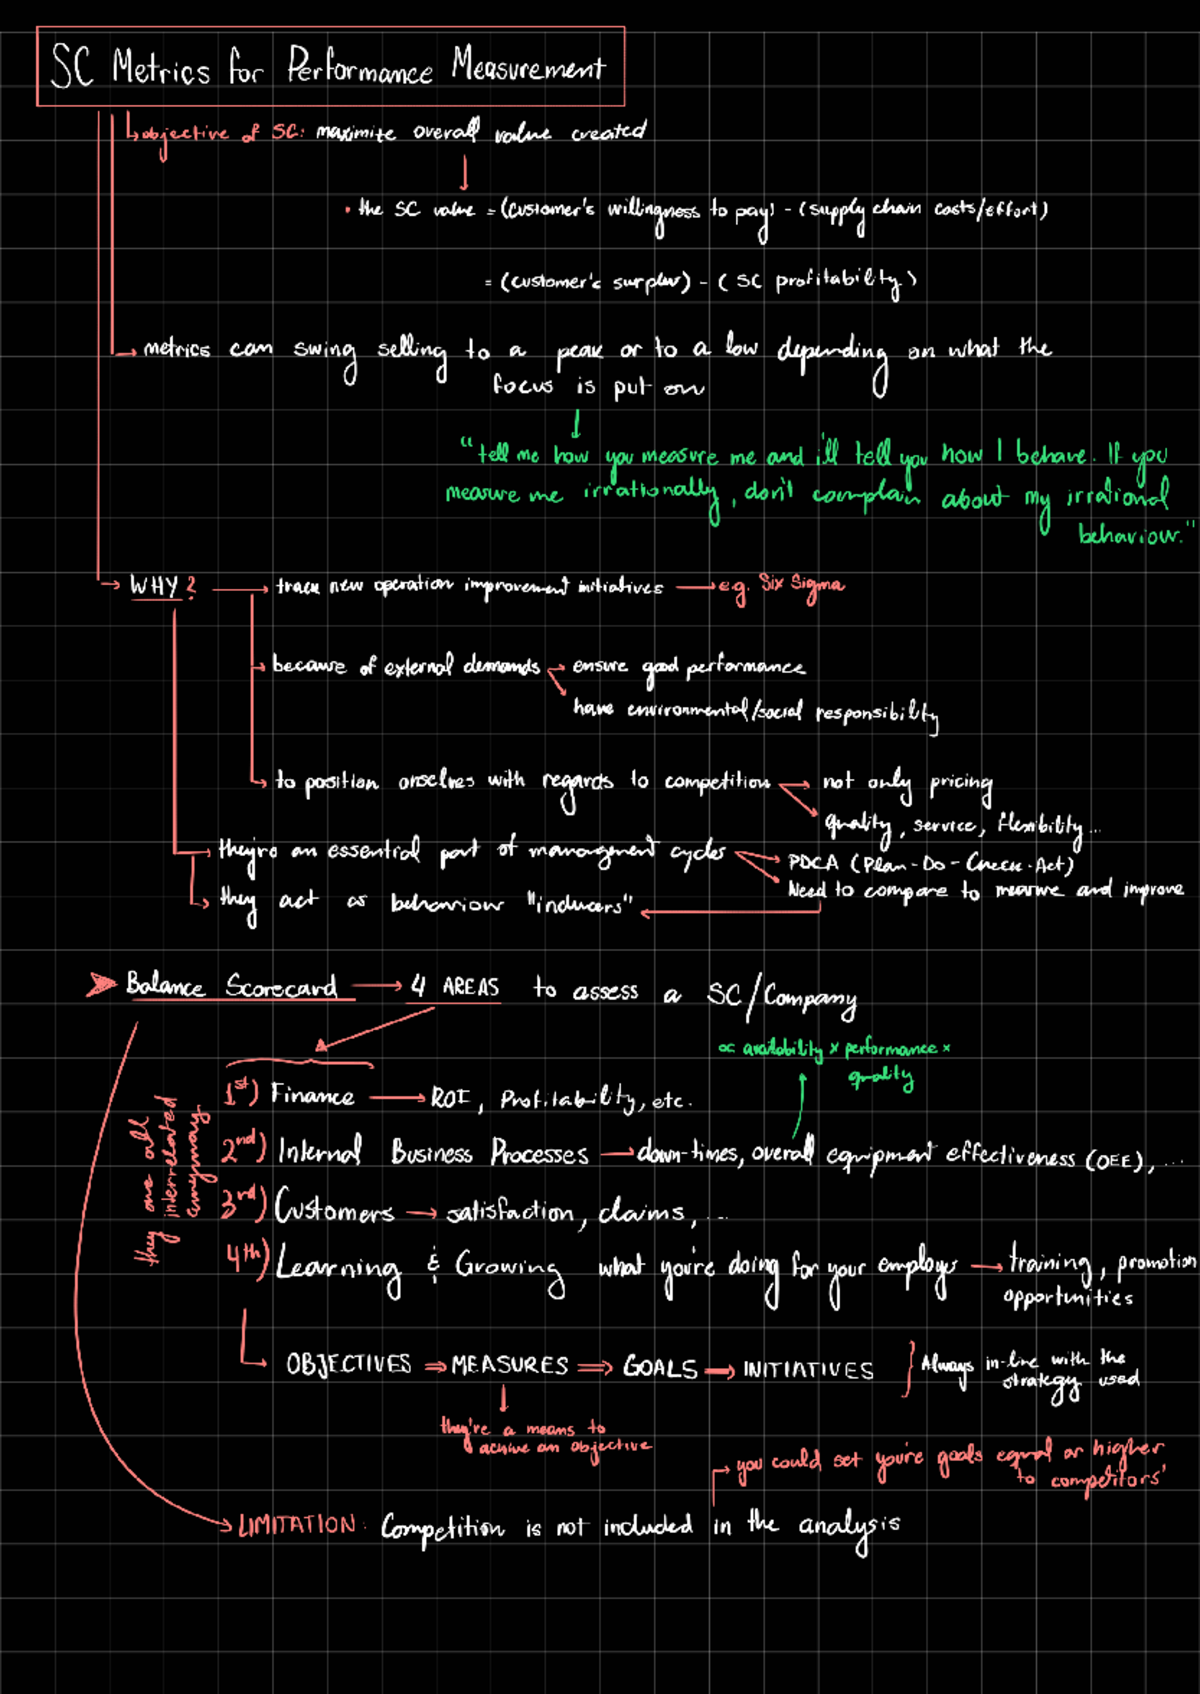 SC Metrics for Performance Measurement
↳objective of SC: maximize overall value created
• the SC value = (customer's willingness to pay) - (supply chain costs/effort)
= (customer's surplus) - (SC profitability)
→ metrics can swing selling to a peak or to a low depending on what the
focus is put on
"tell me how you measure me and i'll tell you how I behave. If you
measure me irrationally, don't complain about my irrational
behaviour."
→ WHY? → track new operation improvement initiatives → e.g. Six Sigma
→ because of external demands → ensure good performance
have environmental/social responsibility
→ to position ourselves with regards to competition → not only pricing
quality, service, flexibility...
→ they're an essential part of management cycles → PDCA (Plan-Do-Check-Act)
Need to compare to measure and improve
↳ they act as behaviour "inducers"
➤ Balance Scorecard → 4 AREAS to assess a SC/Company
∝ availability × performance ×
quality
1st) Finance → ROI, Profitability, etc.
2nd) Internal Business Processes → down-times, overall equipment effectiveness (OEE), ...
3rd) Customers → satisfaction, claims, ...
4th) Learning & Growing what you're doing for your employs → training, promotion
opportunities
they are all
interrelated
anyway
↳ OBJECTIVES ⇒ MEASURES ⇒ GOALS → INITIATIVES } Always in-line with the
strategy used
they're a means to
achive an objective
you could set you're goals equal or higher
to competitors'
→ LIMITATION: Competition is not included in the analysis